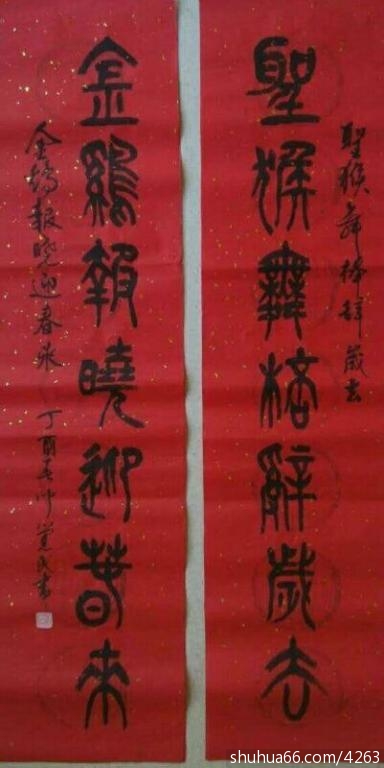 聖猴舞棒辭歲去
聖猴舞棒辞歲去
金鷄報曉迎春來
金鷄報曉迎春來 丁酉
shuhua66.com/4263